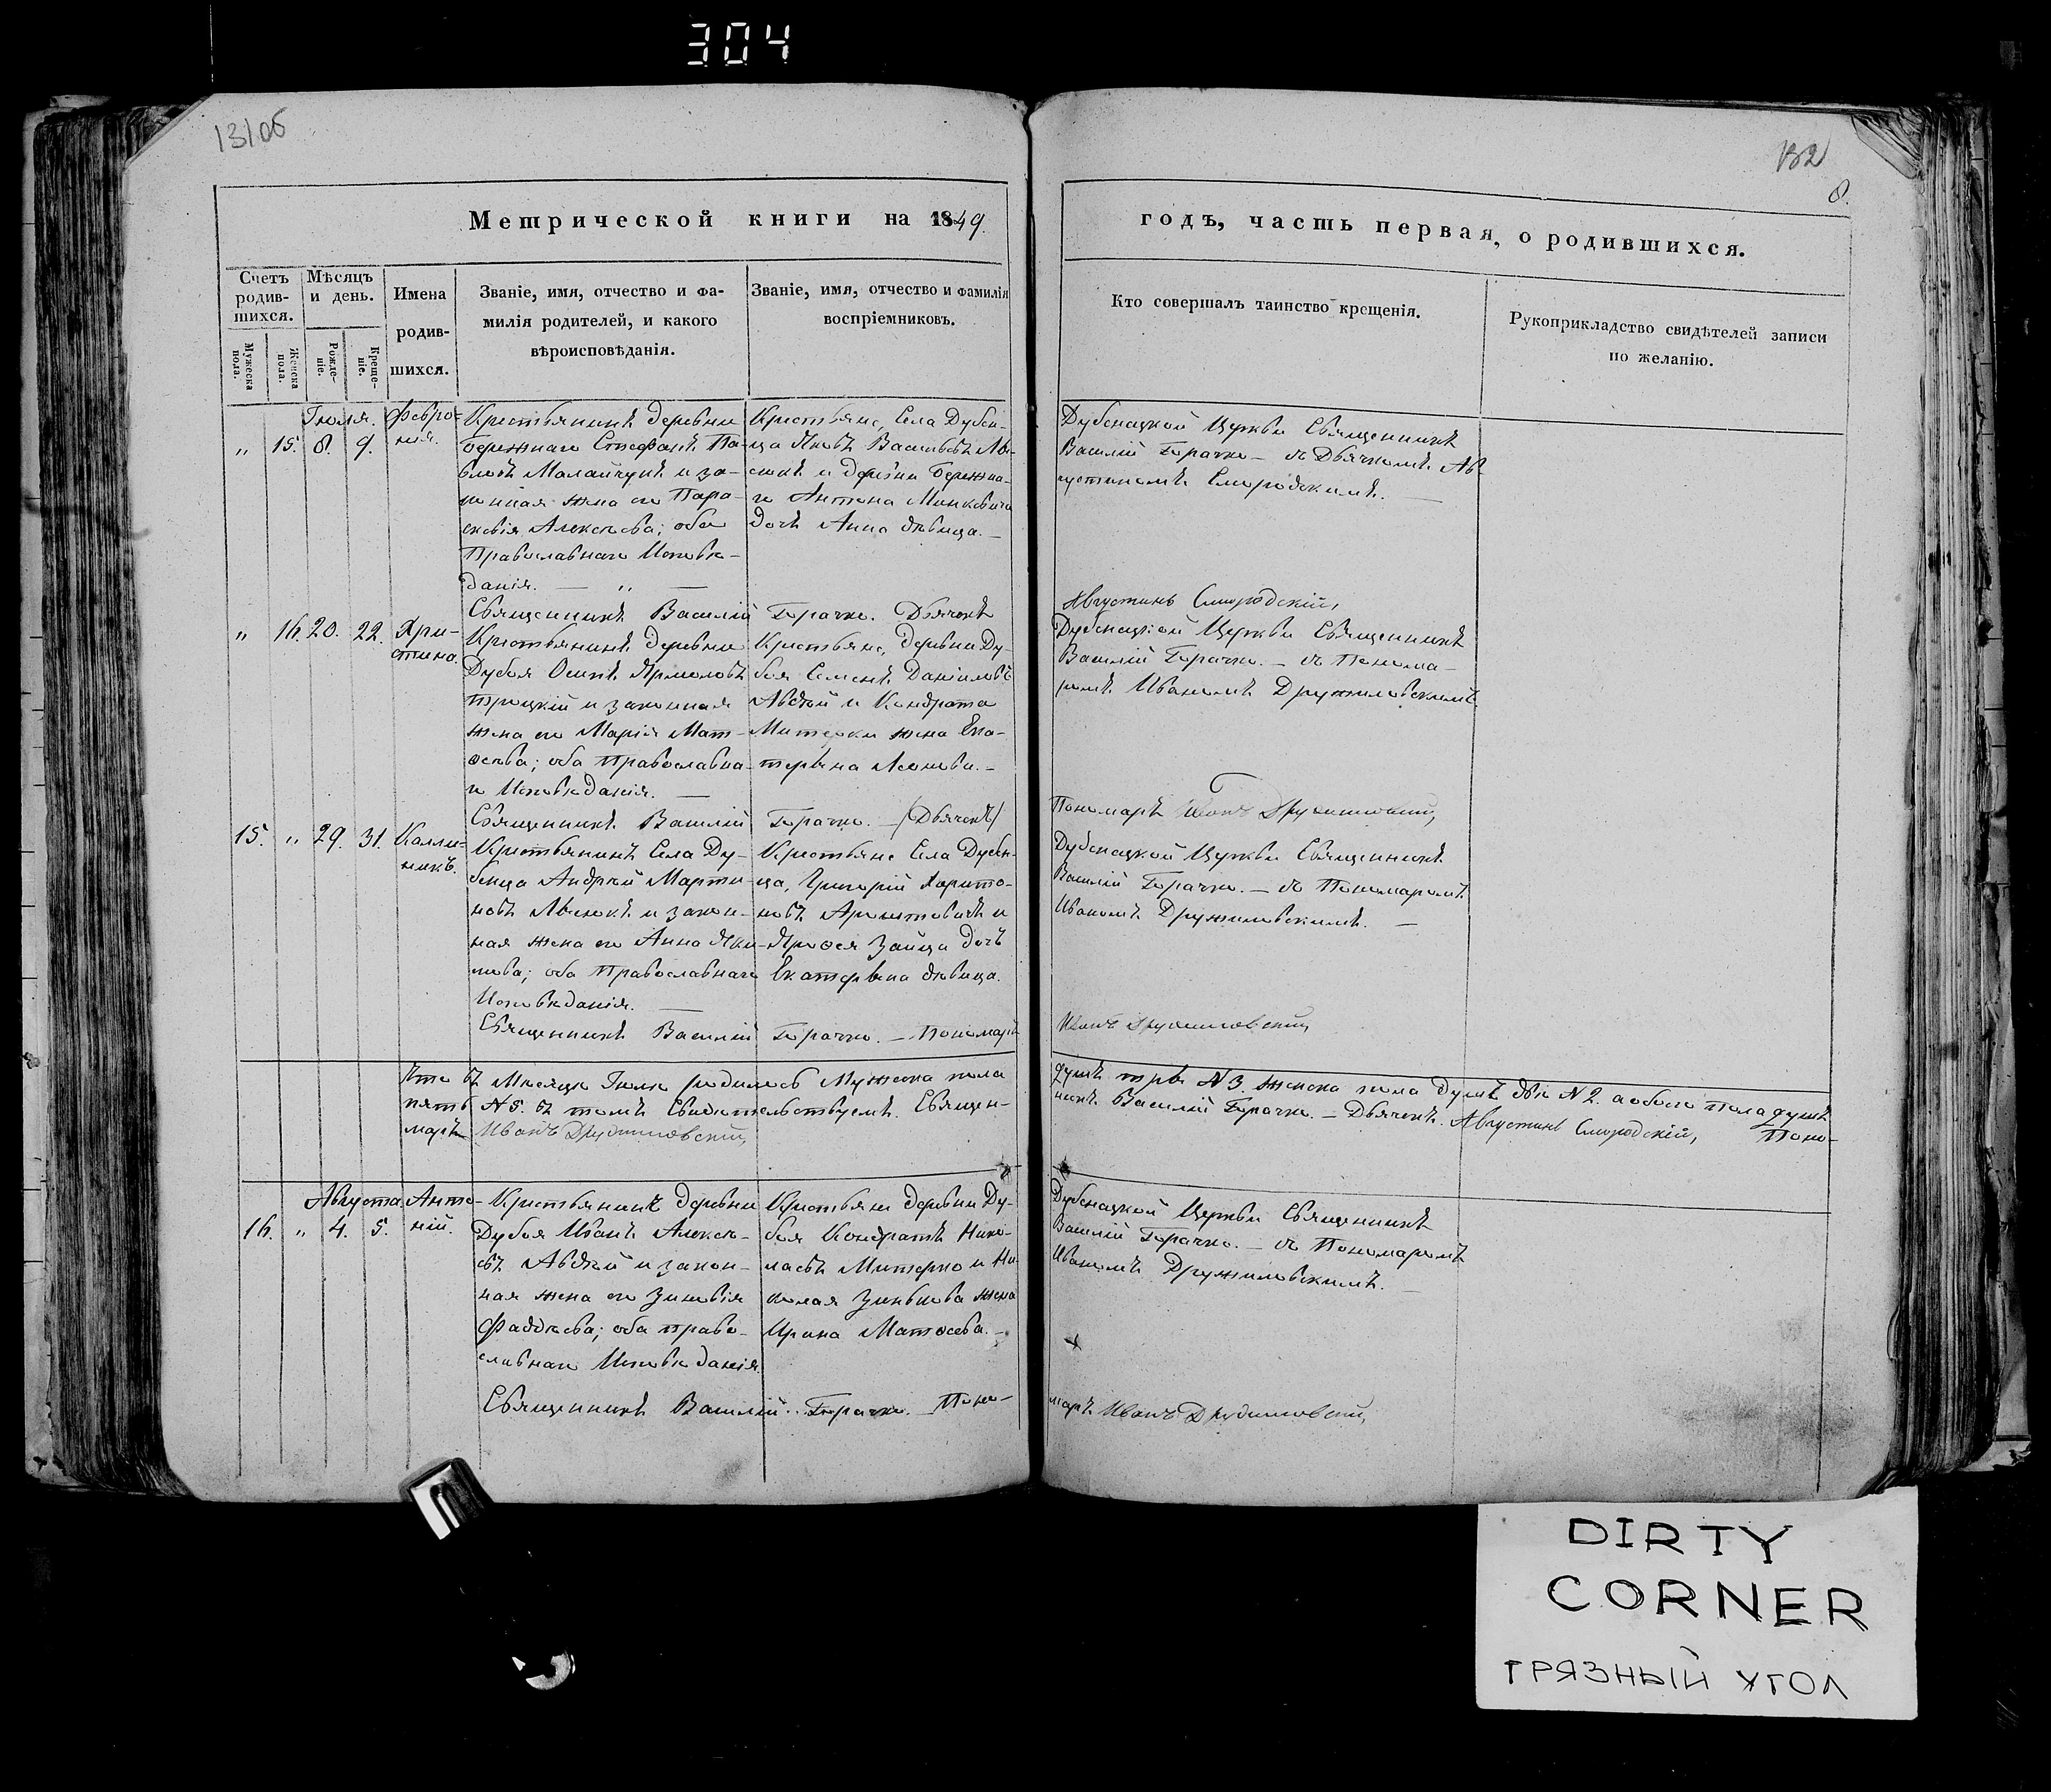 304
131об
132
8.
Метрической книги на 1849.
годъ, часть первая, о родившихся.
Счетъ родив-шихся.
Мужеска пола.
Женска пола.
Мѣсяцъ и день.
Рожде-ніе.
Креще-ніе.
Имена
родив-
шихся.
Званіе, имя, отчество и фа-
милія родителей, и какого
вѣроисповѣданія.
Званіе, имя, отчество и фамилія
воспріемниковъ.
Кто совершалъ таинство крещенія.
Рукоприкладство свидѣтелей записи
по желанію.
Іюля.
„ 15. 8. 9.
Февро-
нія.
Крестьянинъ деревни
Бережнаго Стефанъ Па-
вловъ Малайчукъ и за-
конная жена его Пара-
скевія Алексѣева; оба
Православнаго Исповѣ-
данія. — „ —
Крестьяне, Села Дубен-
ца Яковъ Васильевъ
и деревни Бережна-
го Антона Минковича
дочь Анна дѣвица. —
Дубенецкой Церкви Священникъ
Василій Горачко — съ Дьячкомъ Ав-
густиномъ Смородскимъ. —
Священникъ Василій Горачко. Дьячекъ
Августинъ Смородскій,
„ 16. 20. 22.
Хри-
стина.
Крестьянинъ деревни
Дубоя Осипъ Ярмоловъ
Троцкій и законная
жена его Марія Мат-
ѳеева; оба Православна-
го Исповѣданія. —
Крестьяне, деревни Ду-
боя Семенъ Даніиловъ
Авдѣй и Кондрата
Митерки жена Ека-
терина Леонова. —
Дубенецкой Церкви Священникъ
Василій Горачко. — съ Понома-
ромъ Иваномъ Дружиловскимъ.
Священникъ Василій Горачко. — (Дьячекъ)
Пономарь Иванъ Дружиловскій,
15. „ 29. 31.
Калли-
никъ.
Крестьянинъ Села Ду-
бенца Андрей Марти-
новъ Авсюкъ и закон-
ная жена его Анна Яки-
мова; оба Православнаго
Исповѣданія. —
Крестьяне Села Дубен-
ца, Григорій Харито-
новъ и
Ярося Зайца дочь
Екатерина дѣвица.
Дубенецкой Церкви Священникъ
Василій Горачко. — съ Пономаромъ
Иваномъ Дружиловскимъ. —
Священникъ Василій Горачко. — Пономарь
Иванъ Дружиловскій,
Что въ Мѣсяцѣ Іюлѣ родилось Мужеска пола
душъ три N 3. женска пола Душъ двѣ N 2. а обоего пола душъ
пять N 5. въ томъ Свидѣтельствуемъ. Священ-
никъ Василій Горачко. — Дьячекъ. Августинъ Смородскій, Поно-
марь Иванъ Дружиловскій,
Августа.
16. „ 4. 5.
Анто-
ній.
Крестьянинъ деревни
Дубоя Иванъ Алексѣ-
евъ Авдѣй и закон-
ная жена его Зиновія
Фаддѣева; оба право-
славнаго Исповѣданія.
Крестьяни деревни Ду-
боя Кондратъ Нико-
лаевъ Митерко и Ни-
колая Зинькова жена
Ирина Матѳеева. —
Дубенецкой Церкви Священникъ
Василій Горачко. — съ Пономаромъ
Иваномъ Дружиловскимъ. —
Священникъ Василій Горачко. — Поно-
марь Иванъ Дружиловскій,
DIRTY
CORNER
ГРЯЗНЫЙ УГОЛ